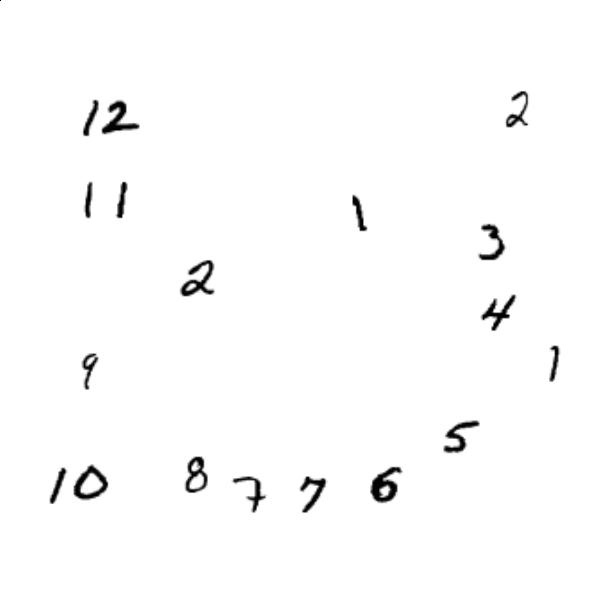 12 2
11 1
3
2
4
9 1
5
10 8 7 7 6